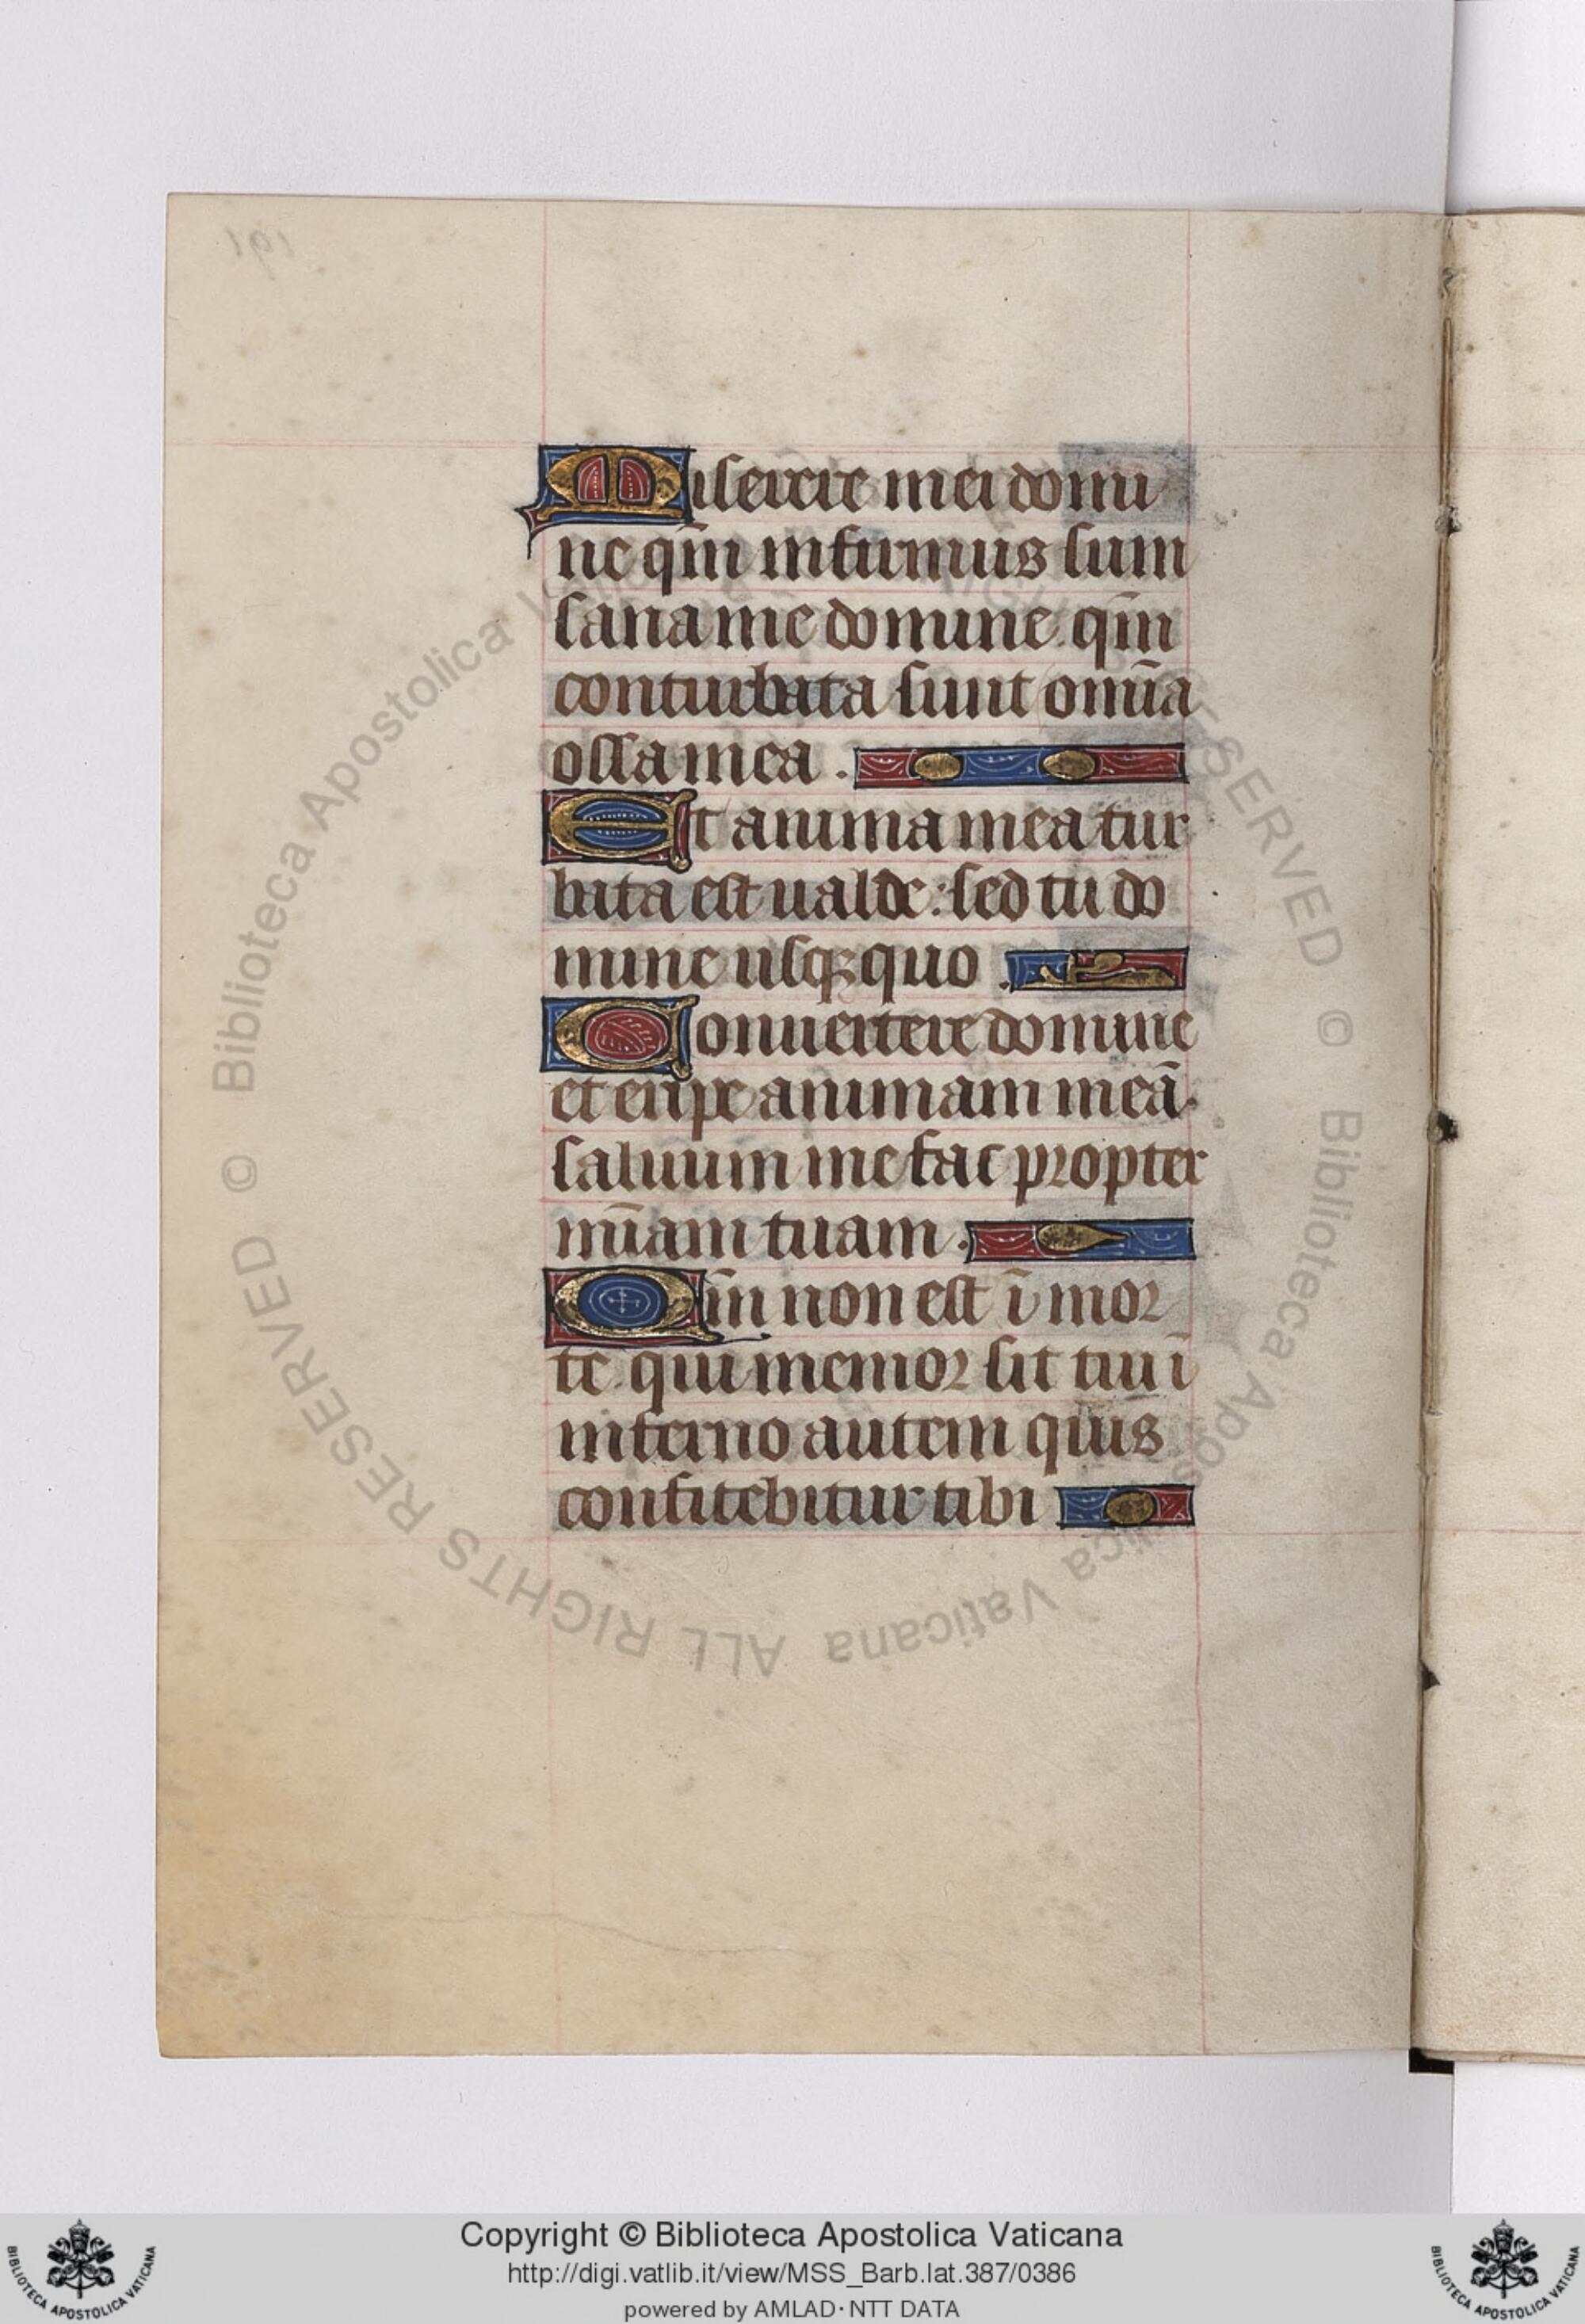 Miserere mei domi
ne qm̄ infirmus sum
sana me domine. qm̄
conturbata sunt om̄ia
ossa mea .
Et anima mea tur
bata est ualde: sed tu do
mine usqꝫ quo .
Conuertere domine
et eripe animam meā.
saluum me fac propter
mīam tuam .
Qm̄ non est ī mor
te. qui memor sit tui ī
inferno autem quis
confitebitur tibi
191
© Biblioteca Apostolica Vaticana ALL RIGHTS RESERVED
© Biblioteca Apostolica Vaticana ALL RIGHTS RESERVED
Copyright © Biblioteca Apostolica Vaticana
http://digi.vatlib.it/view/MSS_Barb.lat.387/0386
powered by AMLAD·NTT DATA
BIBLIOTECA APOSTOLICA VATICANA
BIBLIOTECA APOSTOLICA VATICANA